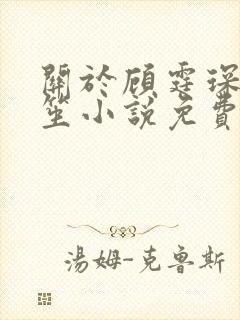 關於顧霆琛
笙小說免費
湯姆-克魯斯